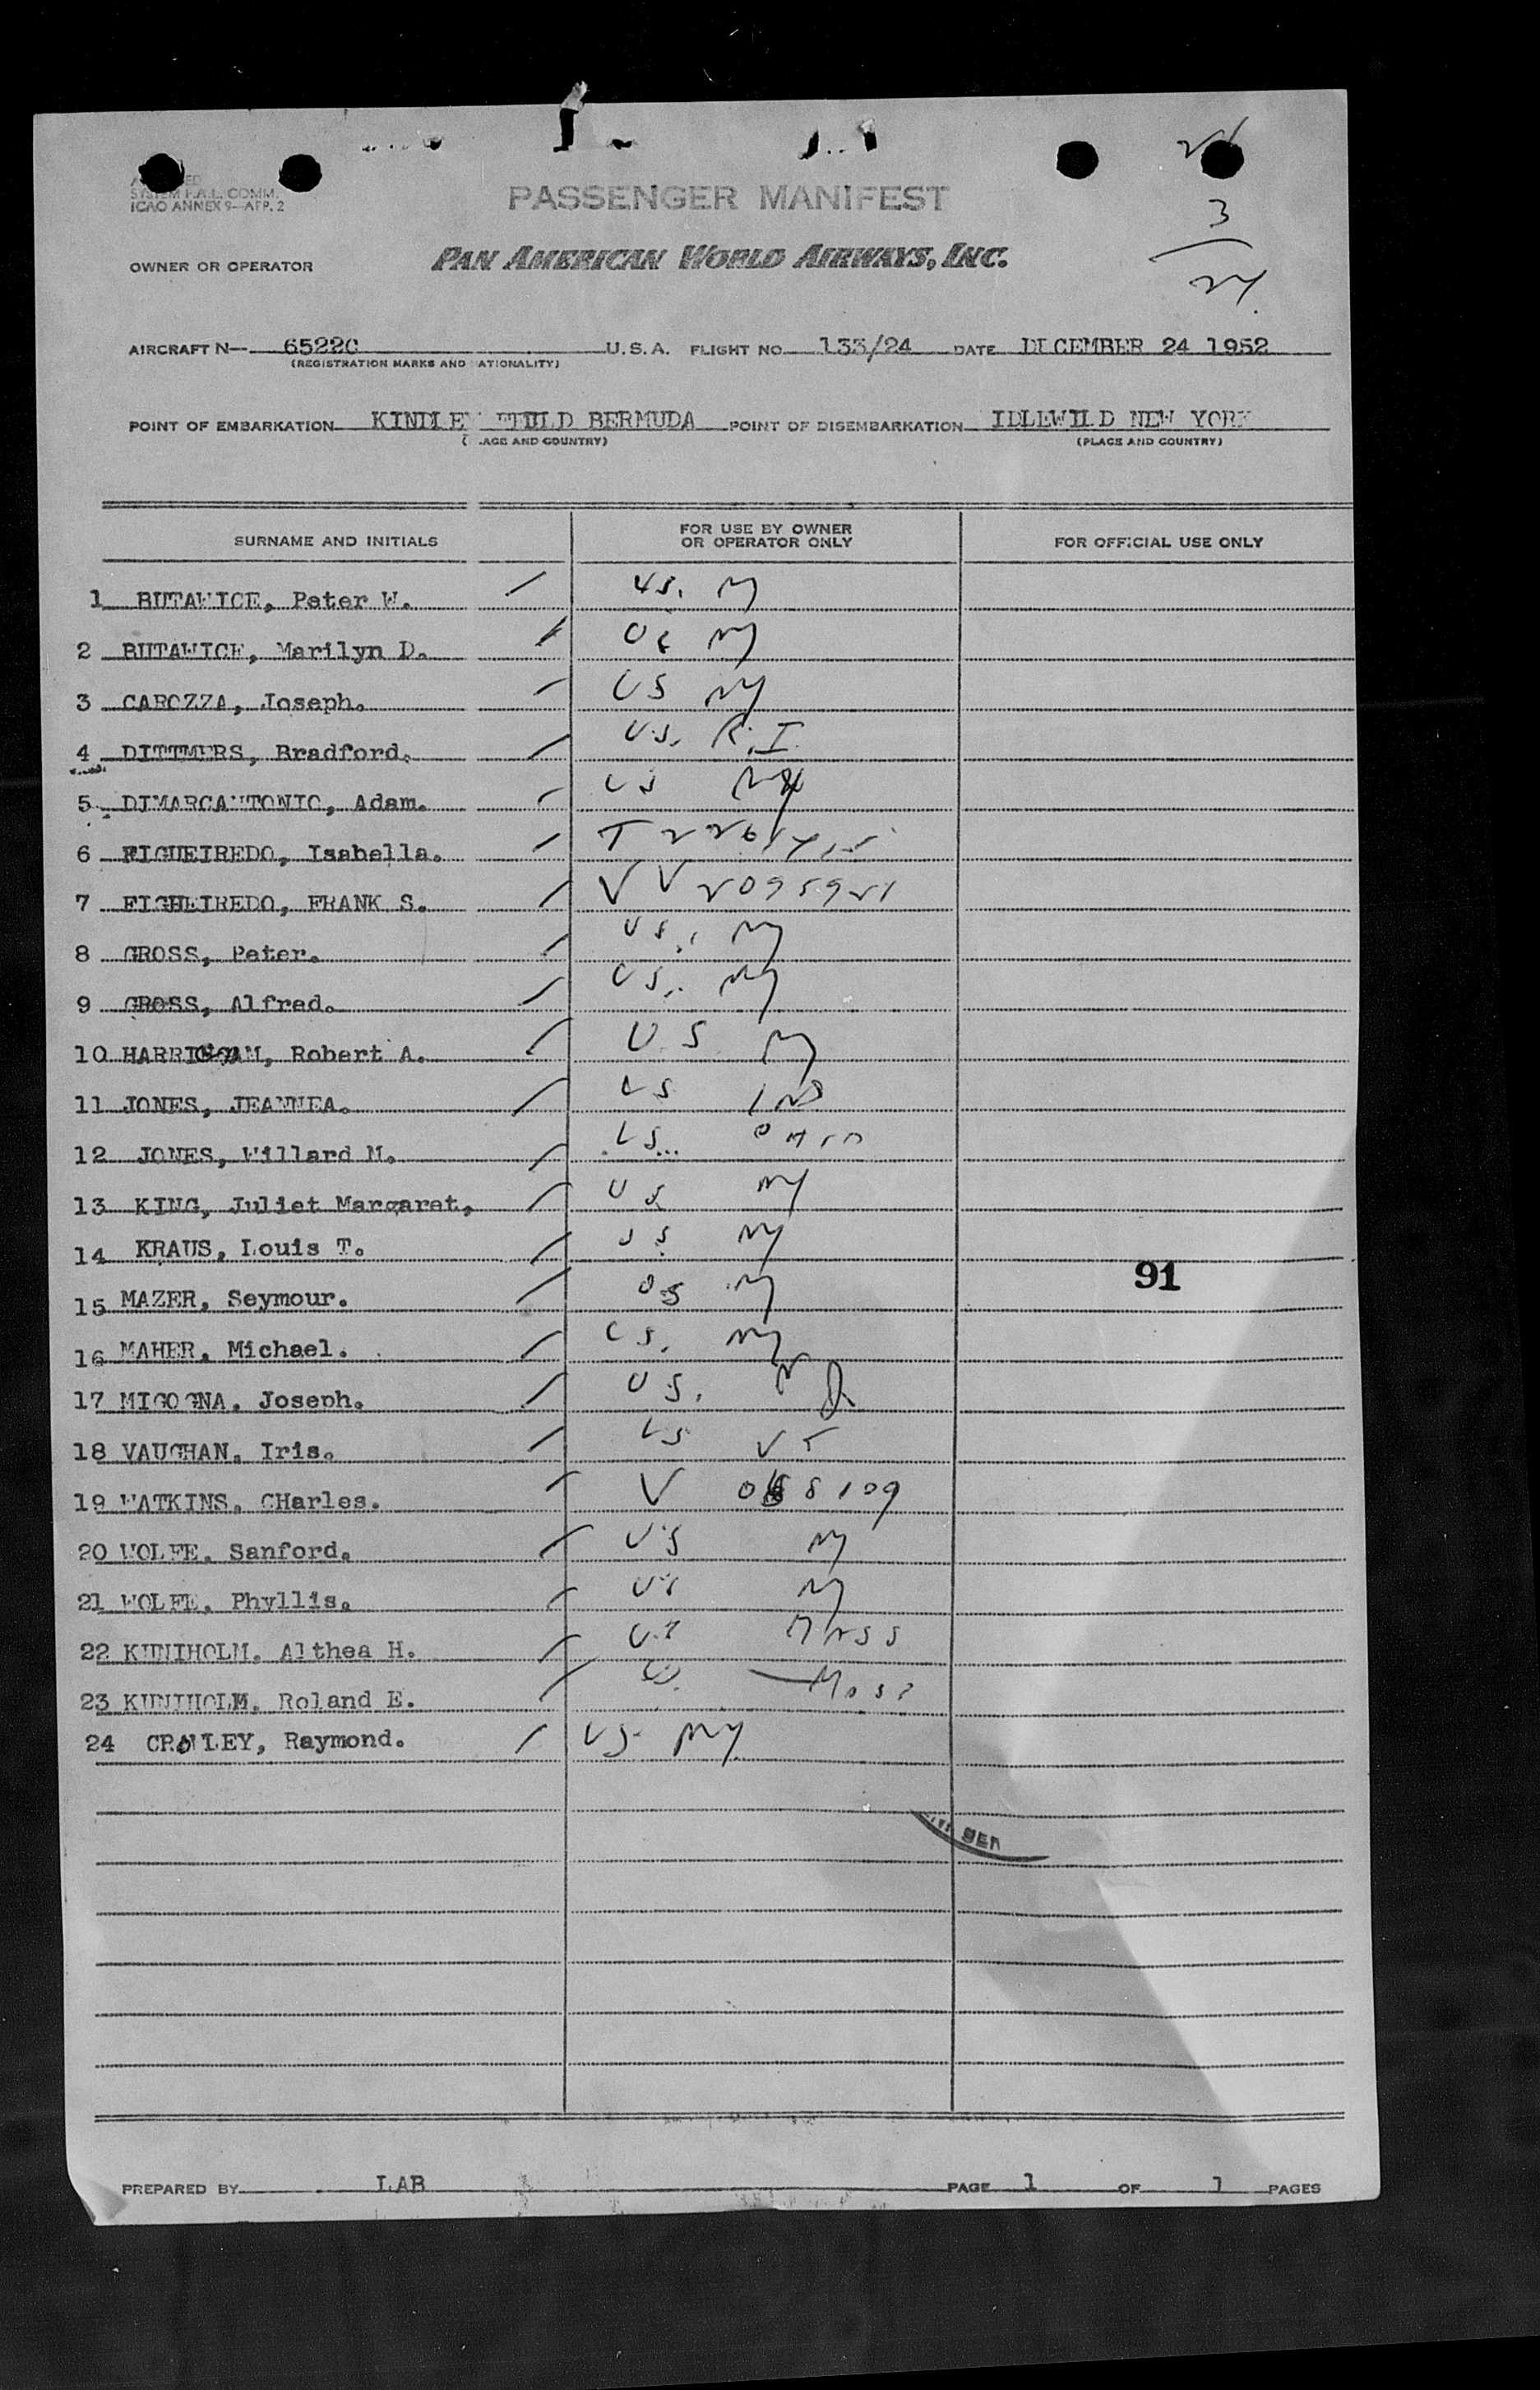 21
SYSTEM F.A.L. COMM.
ICAO ANNEX 9—APP. 2
PASSENGER MANIFEST
3
24
OWNER OR OPERATOR PAN AMERICAN WORLD AIRWAYS, INC.
AIRCRAFT N— 6522C U.S.A. FLIGHT NO. 133/24 DATE DECEMBER 24 1952
(REGISTRATION MARKS AND NATIONALITY)
POINT OF EMBARKATION KINDLEY FIELD BERMUDA POINT OF DISEMBARKATION IDLEWILD NEW YORK
(PLACE AND COUNTRY) (PLACE AND COUNTRY)
SURNAME AND INITIALS FOR USE BY OWNER OR OPERATOR ONLY FOR OFFICIAL USE ONLY
1 BUTAWICE, Peter W. US. NY
2 BUTAWICE, Marilyn D. US NY
3 CAROZZA, Joseph. US NY
4 DITTMERS, Bradford. U.S. R.I.
5 DIMARCANTONIO, Adam. US NY
6 FIGUEIREDO, Isabella.
7 FIGHEIREDO, FRANK S. V V 2095921
8 GROSS, Peter. US., NY
9 GROSS, Alfred. US. NY
10 Robert A. US NY
11 JONES, JEANNEA. US IND
12 JONES, Willard M. US OHIO
13 KING, Juliet Margaret, US NY
14 KRAUS, Louis T. US NY
15 MAZER, Seymour. US NY
16 MAHER, Michael. US. NY
17 MIGOGNA, Joseph. US.
18 VAUGHAN, Iris. US VT
19 WATKINS, CHarles. V
20 WOLFE, Sanford. US NY
21 WOLFE, Phyllis. US NY
22 KUNIHOLM, Althea H. US MASS
23 KUNIHOLM, Roland E. Mass
24 CROWLEY, Raymond. US NY
91
PREPARED BY LAB PAGE 1 OF 1 PAGES